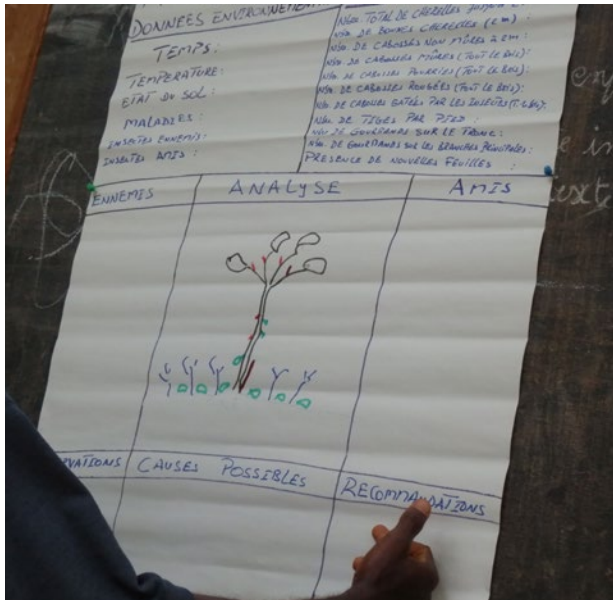 DONNÉES ENVIRONNEMENT
TEMPS :
TEMPÉRATURE :
ETAT DU SOL :
MALADIES :
INSECTES ENNEMIS :
INSECTES AMIS :
NBre TOTAL DE CHERELLES
NBre DE BONNES CHERELLES (2 cm) :
NBre DE CABOSSES NON MÛRES 2 cm :
NBre DE CABOSSES MÛRES (TOUT LE BOIS) :
NBre DE CABOSSES POURRIES (TOUT LE BOIS) :
NBre DE CABOSSES RONGÉES (TOUT LE BOIS) :
NBre DE CABOSSES GATÉES PAR LES INSECTES
NBre DE TIGES PAR PIED :
NBre DE GOURMANDS SUR LE TRONC :
NBre DE GOURMANDS SUR LES BRANCHES PRINCIPALES :
PRESENCE DE NOUVELLES FEUILLES :
ENNEMIS
ANALYSE
AMIS
VATIONS
CAUSES POSSIBLES
RECOMMANDATIONS